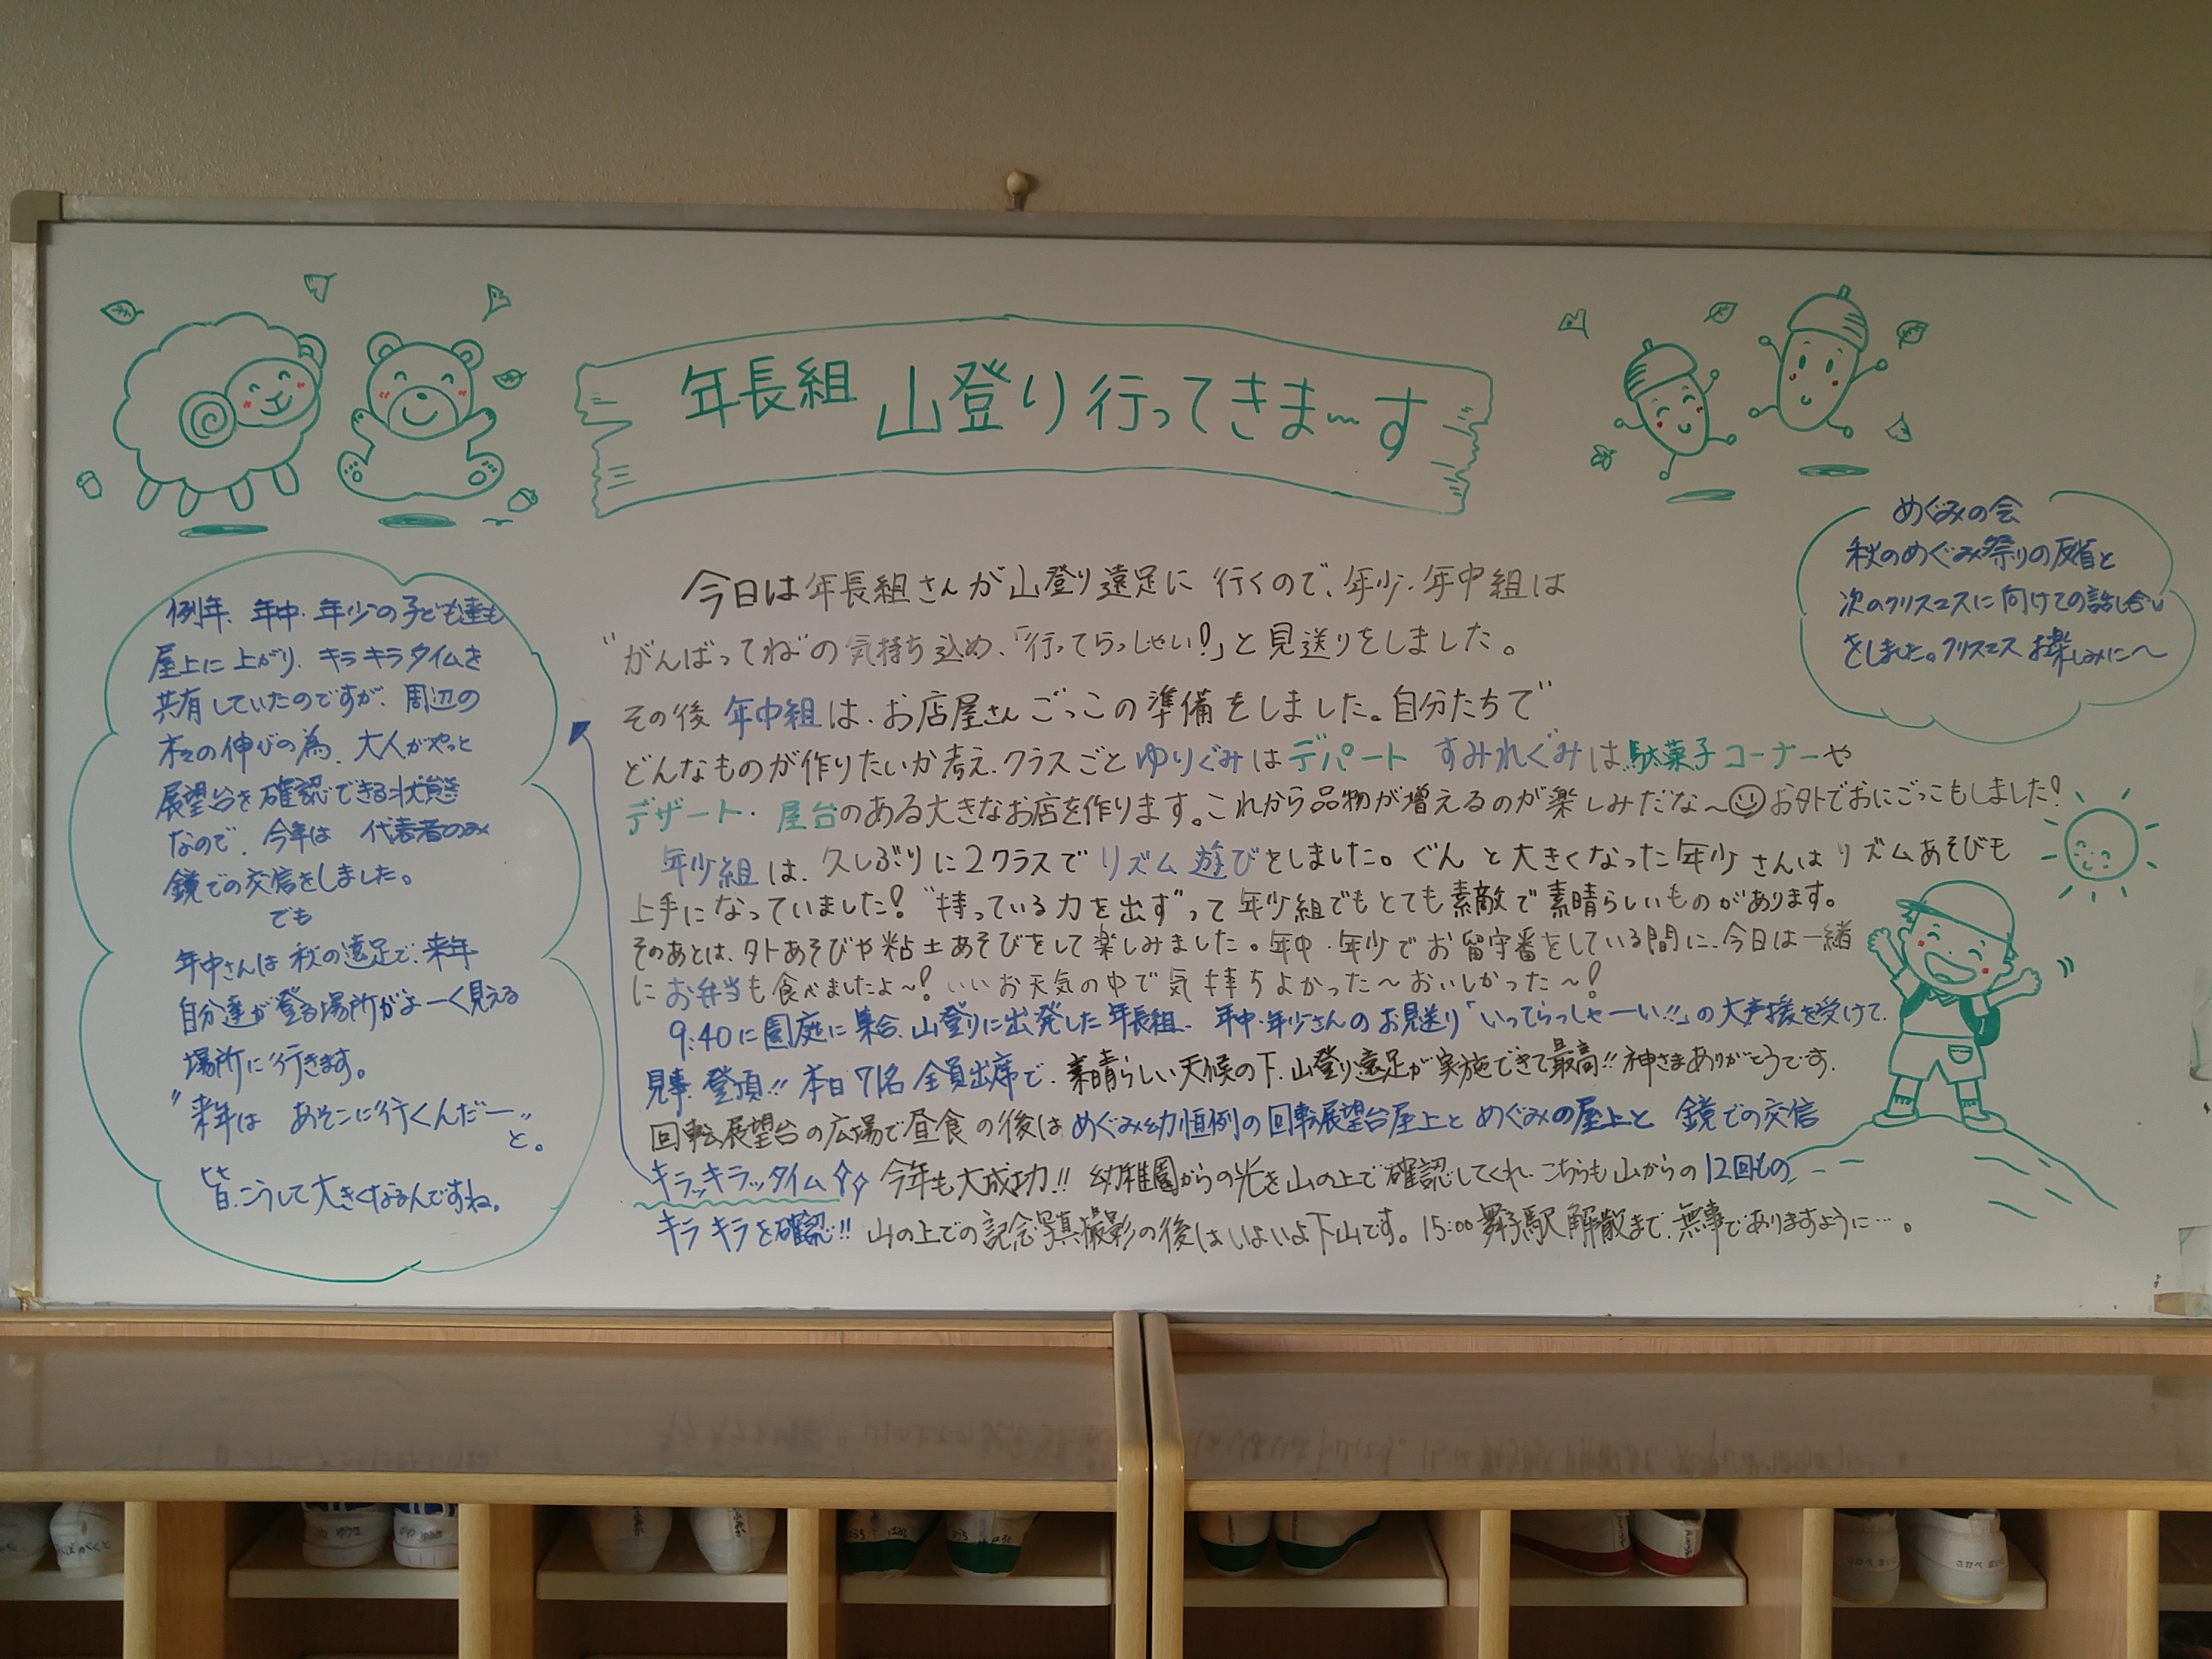 年長組 山登り行ってきま〜す
めぐみの会
秋のめぐみ祭りの反省と
次のクリスマスに向けての話し合い
をしました。クリスマスお楽しみに〜
今日は年長組さんが山登り遠足に行くので、年少・年中組は
"がんばってね"の気持ち込め、「行ってらっしゃい!」と見送りをしました。
その後 年中組は、お店屋さんごっこの準備をしました。自分たちで
どんなものが作りたいか考え、クラスごとゆりぐみはデパート すみれぐみは駄菓子コーナーや
デザート・屋台のある大きなお店を作ります。これから品物が増えるのが楽しみだな〜☺お外でおにごっこもしました!
年少組は、久しぶりに2クラスでリズム遊びをしました。ぐんと大きくなった年少さんはリズムあそびも
上手になっていました!"持っている力を出す"って年少組でもとても素敵で素晴らしいものがあります。
そのあとは、外あそびや粘土あそびをして楽しみました。年中・年少でお留守番をしている間に、今日は一緒
にお弁当も食べましたよ〜!いいお天気の中で気持ちよかった〜おいしかった〜!
9:40に園庭に集合、山登りに出発した年長組、年中・年少さんのお見送り「いってらっしゃーい!!」の大声援を受けて、
見事、登頂!!本日71名 全員出席で、素晴らしい天候の下、山登り遠足が実施できて最高!!神さまありがとうです。
回転展望台の広場で昼食の後はめぐみ幼恒例の回転展望台屋上とめぐみの屋上と 鏡での交信
キラッキラッタイム 今年も大成功!!幼稚園からの光を山の上で確認してくれ、こちらも山からの12回もの
キラキラを確認!!山の上での記念写真撮影の後はいよいよ下山です。15:00舞子駅解散まで、無事でありますように…。
例年、年中・年少の子ども達も
屋上に上がり、キラキラタイムを
共有していたのですが、周辺の
木々の伸びの為、大人がやっと
展望台を確認できる状態
なので、今年は 代表者のみ
鏡での交信をしました。
でも
年中さんは秋の遠足で、来年
自分達が登る場所がよーく見える
場所に行きます。
"来年は あそこに行くんだー"
と。
皆、こうして大きくなるんですね。